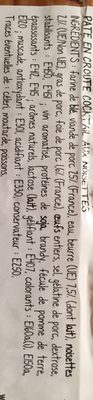 PÂTÉ EN CROÛTE COCKTAIL AUX NOISETTES
INGRÉDIENTS : Farine de blé, viande de porc 25% (France), eau, beurre (UE) 7,5% (dont lait), noisettes
2,1% (UE/non UE), gras de porc, foie de porc 1,6% (France), œufs entiers, sel, gélatine de porc, dextrose,
stabilisants : E450, E451 ; vin aromatisé, protéines de soja, brandy, fécule de pomme de terre,
épaississants : E412, E415 ; arômes naturels, lactose (lait), gélifiant : E407, colorants : E160a(i), E150a,
E120 ; muscade, antioxydant : E301, acidifiant : E330, conservateur : E250.
Traces éventuelles de : céleri, moutarde, poissons.